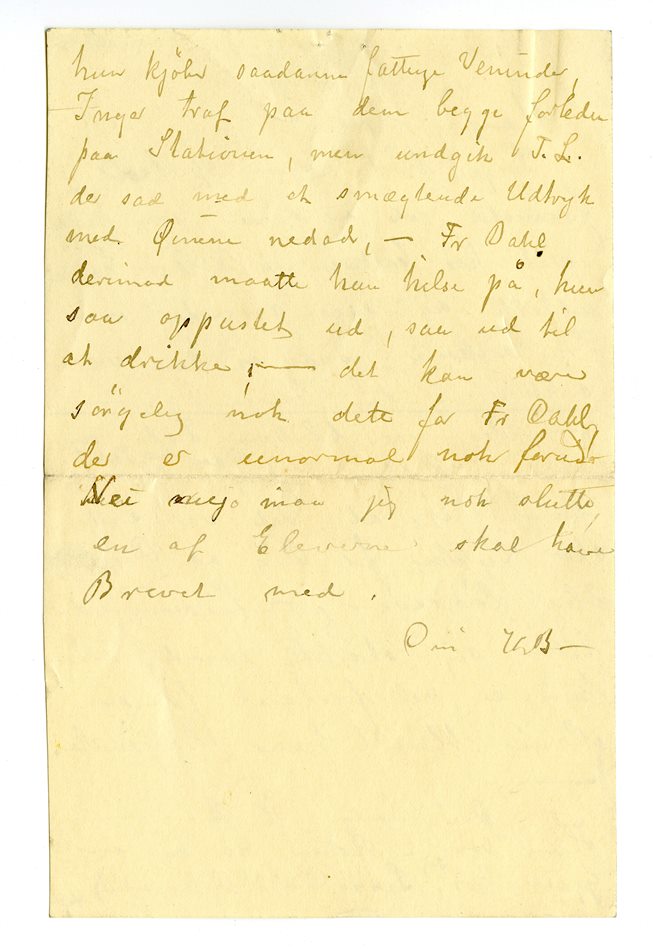 hun kjöbr saadanne fattige Veninder,
Inger traf paa dem begge forleden
paa Stationen, men undgik T. L.
der sad med et smægtende Udtryk
med Øinene nedad, — Fr Dahl
derimod maatte hun hilse på, hun
saa oppustet ud, saa ud til
at drikke, — det kan være
sörgelig nok dette for Fr Dahl,
der er unormal nok forud
Nei maa jeg nok slutte,
en af Eleverne skal have
Brevet med.
Din